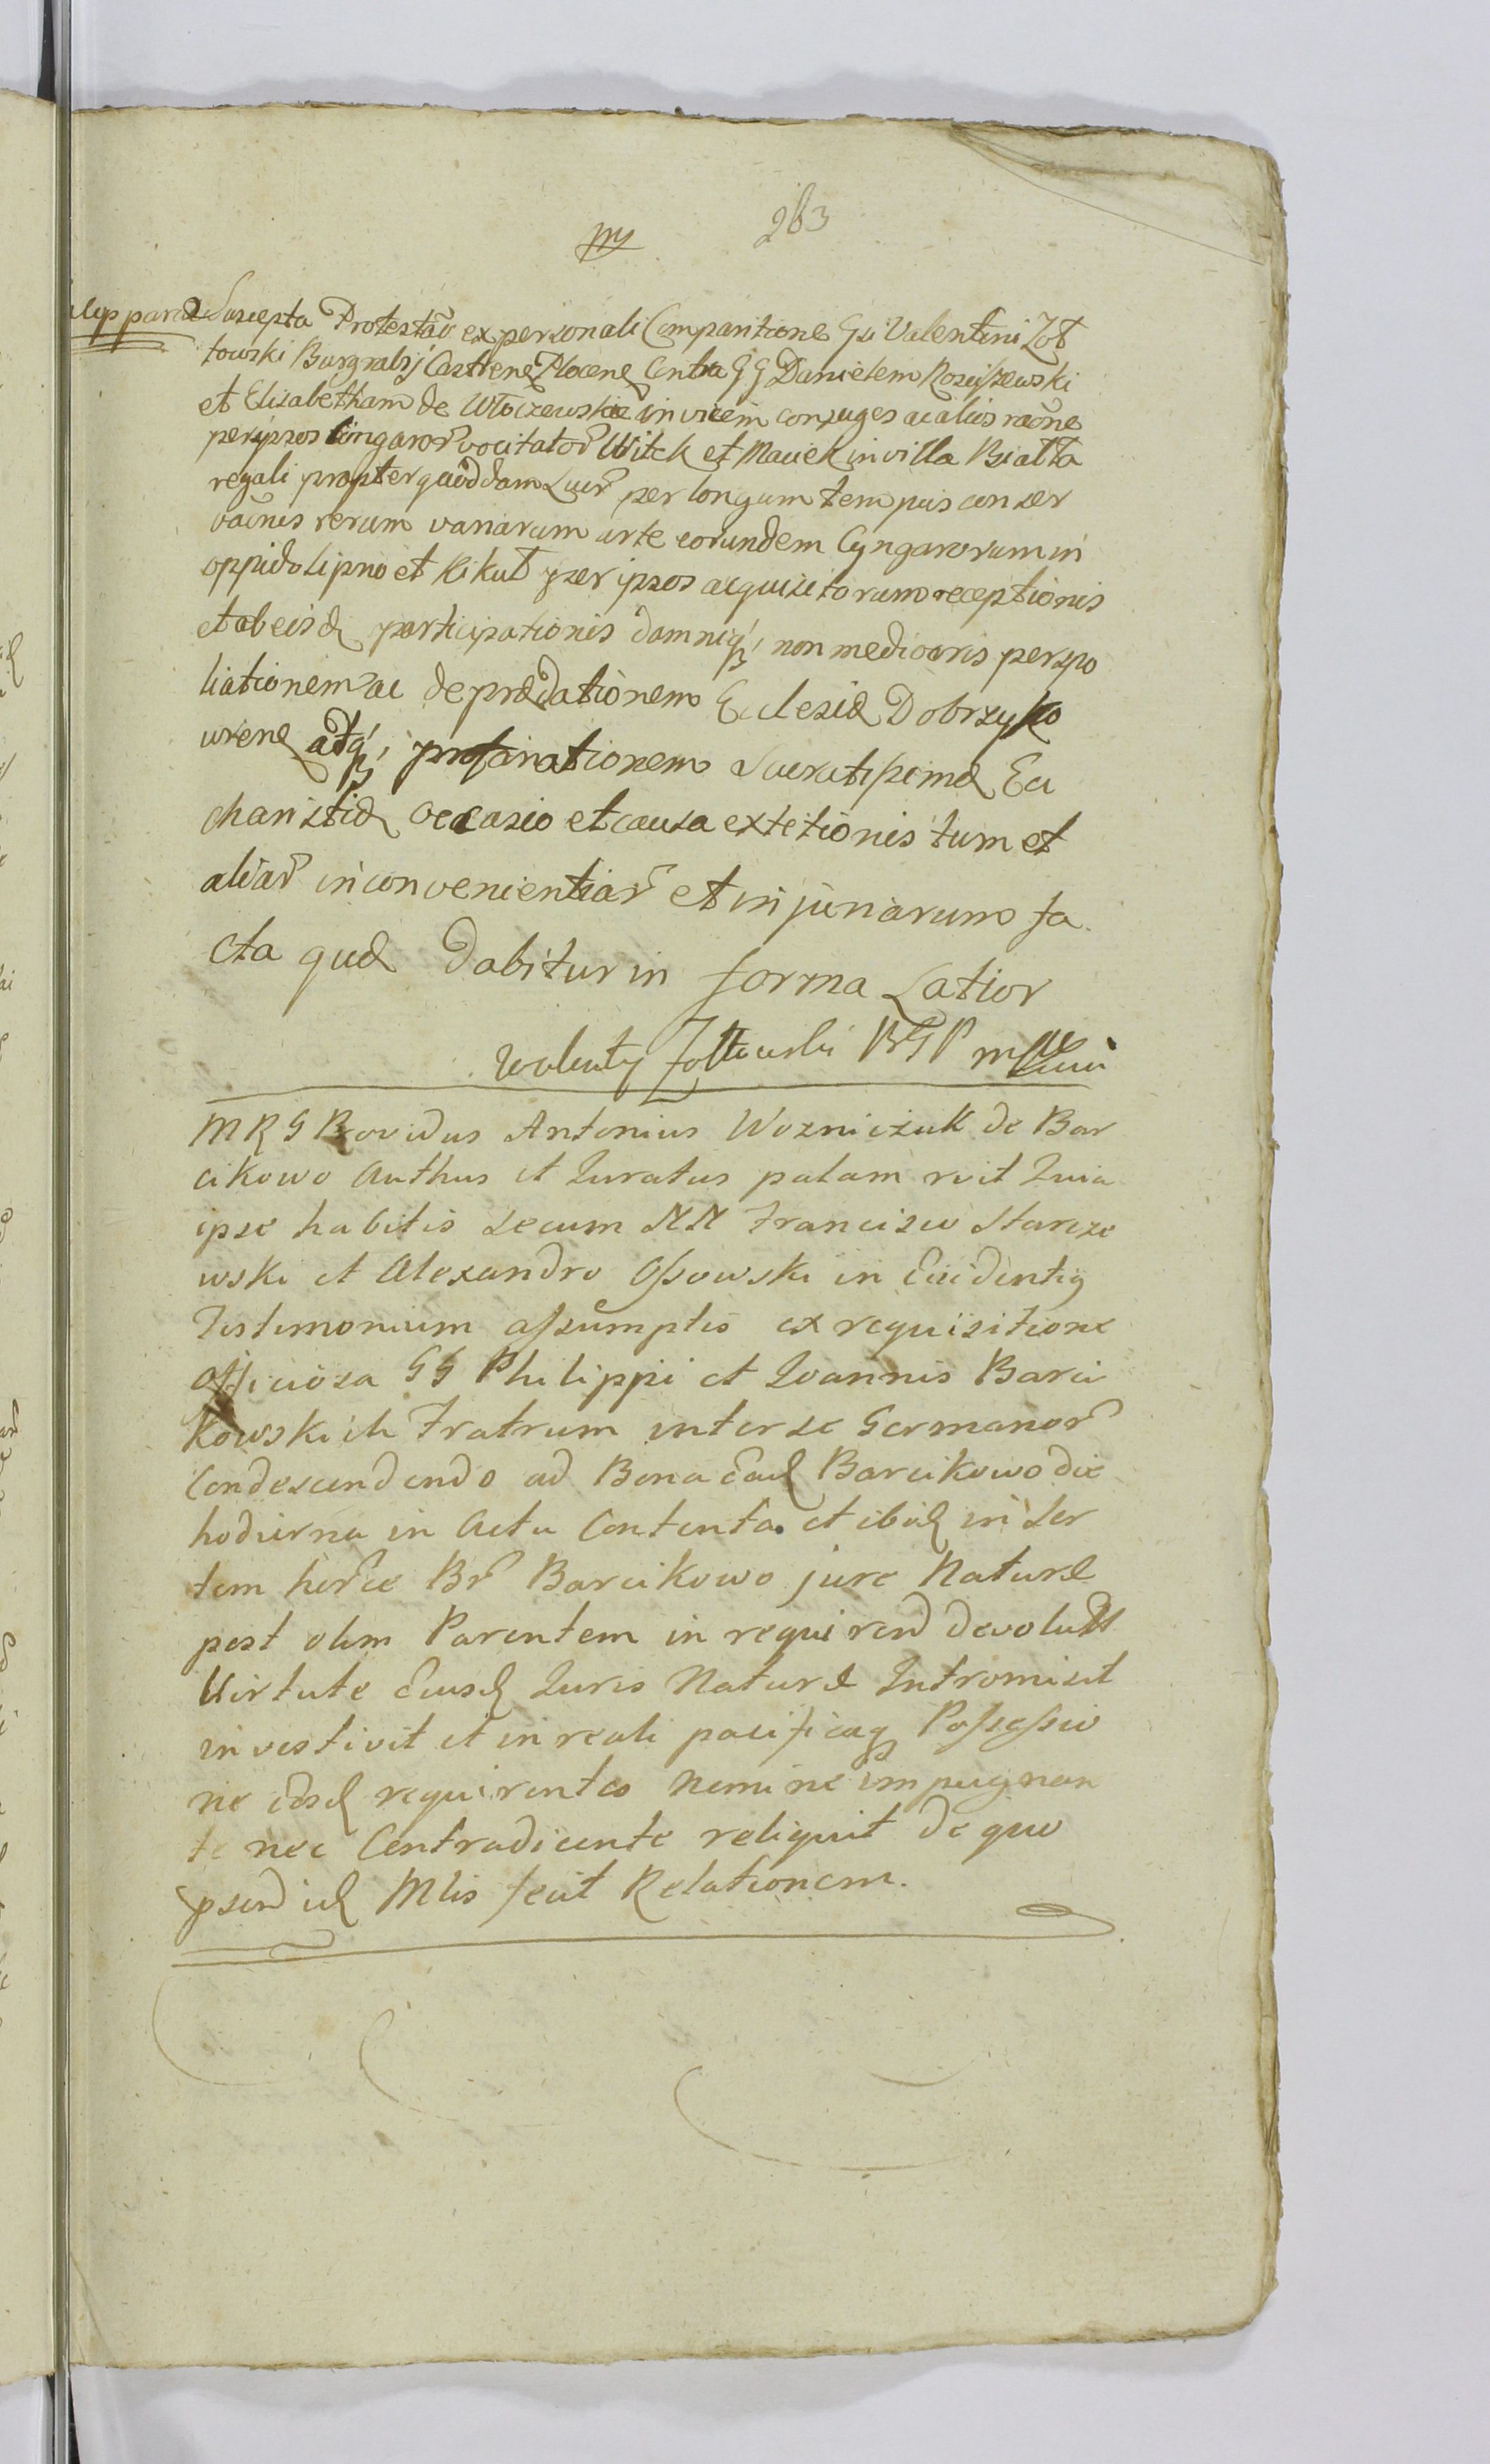 283
Suscepta Protestao ex personali Comparitione Gsi Valentini Zoł
towski Burgrabij Castrene Plocene Contra GG Danielem Rosciszewski
et Elisabetham de Włoczewskie invicem conjuges ac alios raone
per ipsos Cingaror vocitator Witek et Maciek in villa Białła
regali propter quoddam Lucr per longum tempus conser
vaonis rerum variarum arte eorundem Cyngarorum in
oppido Lipno et Kikuł per ipsos acquisitarum receptionis
et ab eisd participationis damniq, non mediocris perspo
liationem ac deprædationem Ecclesiæ Dobrzyko
wiene adq, profanationem Sacratissimæ Eu
charistiæ occasio et causa extetionis tum et
aliar inconvenientiar et injuriarum fa
cta quæ dabitur in forma Latior
Walenty Zołtowski BGP mp
MRG Providus Antonius Wozniczak de Bar
cikowo Authus et Juratus palam rvit Quia
ipse habitis secum NN Francisco Starcze
wski et Alexandro Ossowski in Evidentig
Testimonium assumptis ex requisitione
officiosa GG Philippi et Joannis Barci
kowskich Fratrum inter se Germanor
Condescendendo ad Bona ead Barcikowo die
hodierna in Actu Contenta et ibid in Sor
tem herce Br Barcikowo jure Naturæ
post olim Parentem in requirend devolut
Virtute Ejusd Juris Naturæ Intromisit
investivit et in reali pacificaq Possessio
ne eosd requirentes Nemine impugnan
te nec Contradicente reliquit de quo
psend id Mlis fecit Relationem.